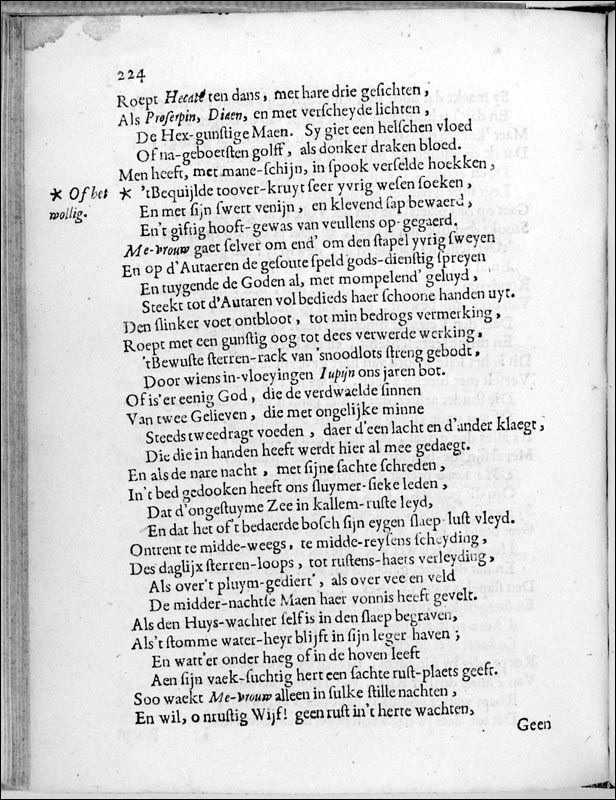 224
Roept Hecaté ten dans, met hare drie gesichten,
Als Proserpin, Diaen, en met verscheyde lichten,
De Hex-gunstige Maen. Sy giet een helschen vloed
Of na-geboetsten golff, als donker draken bloed.
Men heeft, met mane-schijn, in spook verselde hoekken,
* Of het wollig.
* 'tBequijlde toover-kruyt seer yvrig wesen soeken,
En met sijn swert venijn, en klevend sap bewaerd,
En't giftig hooft-gewas van veullens op-gegaerd.
Me-vrouw gaet selver om end' om den stapel yvrig sweyen
En op d'Autaeren de gesoute speld gods-dienstig spreyen
En tuygende de Goden al, met mompelend' geluyd,
Steekt tot d'Autaren vol bedieds haer schoone handen uyt.
Den slinker voet ontbloot, tot min bedrogs vermerking,
Roept met een gunstig oog tot dees verwerde werking,
'tBewuste sterren-rack van 'snoodlots streng gebodt,
Door wiens in-vloeyingen Iupijn ons jaren bot.
Of is'er eenig God, die de verdwaelde sinnen
Van twee Gelieven, die met ongelijke minne
Steeds tweedragt voeden, daer d'een lacht en d'ander klaegt,
Die die in handen heeft werdt hier al mee gedaegt.
En als de nare nacht, met sijne sachte schreden,
In't bed gedooken heeft ons sluymer-sieke leden,
Dat d'ongestuyme Zee in kallem-ruste leyd,
En dat het of't bedaerde bosch sijn eygen slaep-lust vleyd.
Ontrent te midde-weegs, te midde-reysens scheyding,
Des daglijx sterren-loops, tot rustens-haers verleyding,
Als over't pluym-gediert', als over vee en veld
De midder-nachtse Maen haer vonnis heeft gevelt.
Als den Huys-wachter self is in den slaep begraven,
Als't stomme water-heyr blijft in sijn leger haven;
En watt'er onder haeg of in de hoven leeft
Aen sijn vaek-suchtig hert een sachte rust-plaets geeft.
Soo waekt Me-vrouw alleen in sulke stille nachten,
En wil, o nrustig Wijf! geen rust in't herte wachten,
Geen